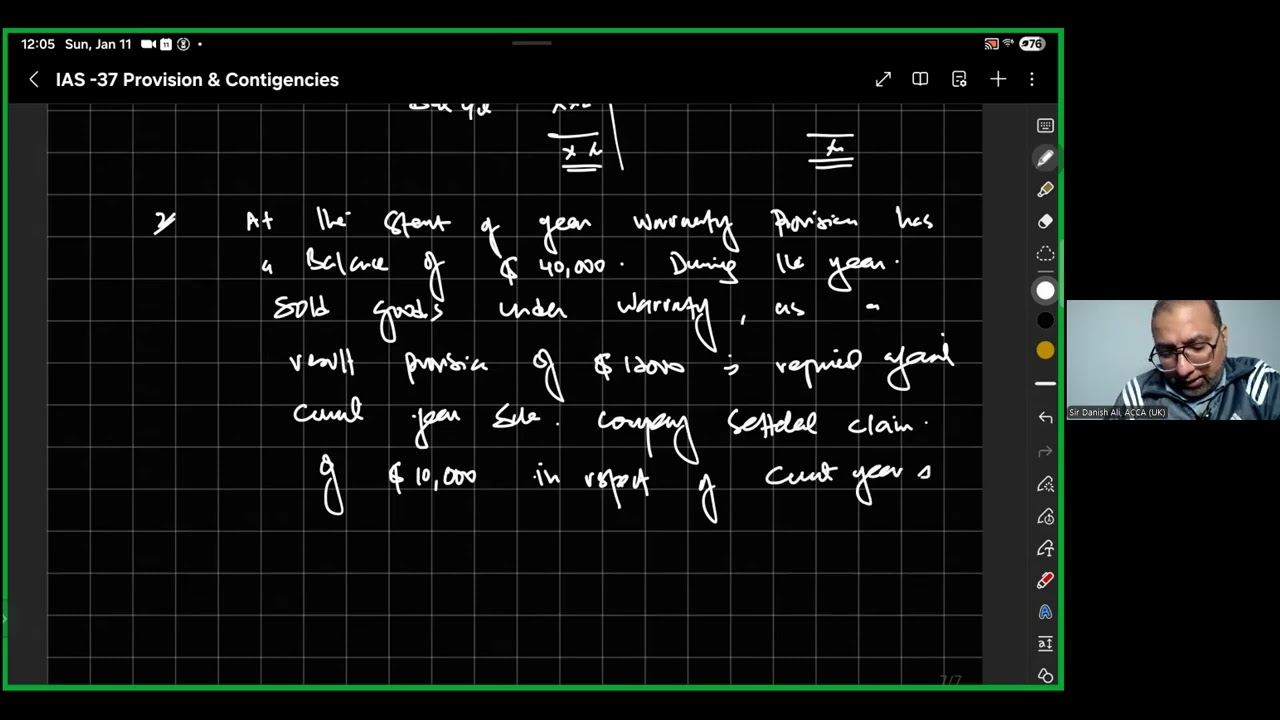 12:05 Sun, Jan 11
76
IAS -37 Provision & Contigencies
2/ At the Start of year Warranty Provision has
a Balance of $ 40,000. During the year.
Sold goods under warranty, as a
result provision of $ 12000 is required against
current year Sale. Company Settled claim.
of $ 10,000 in respect of Current year s
Sir Danish Ali, ACCA (UK)
7/7